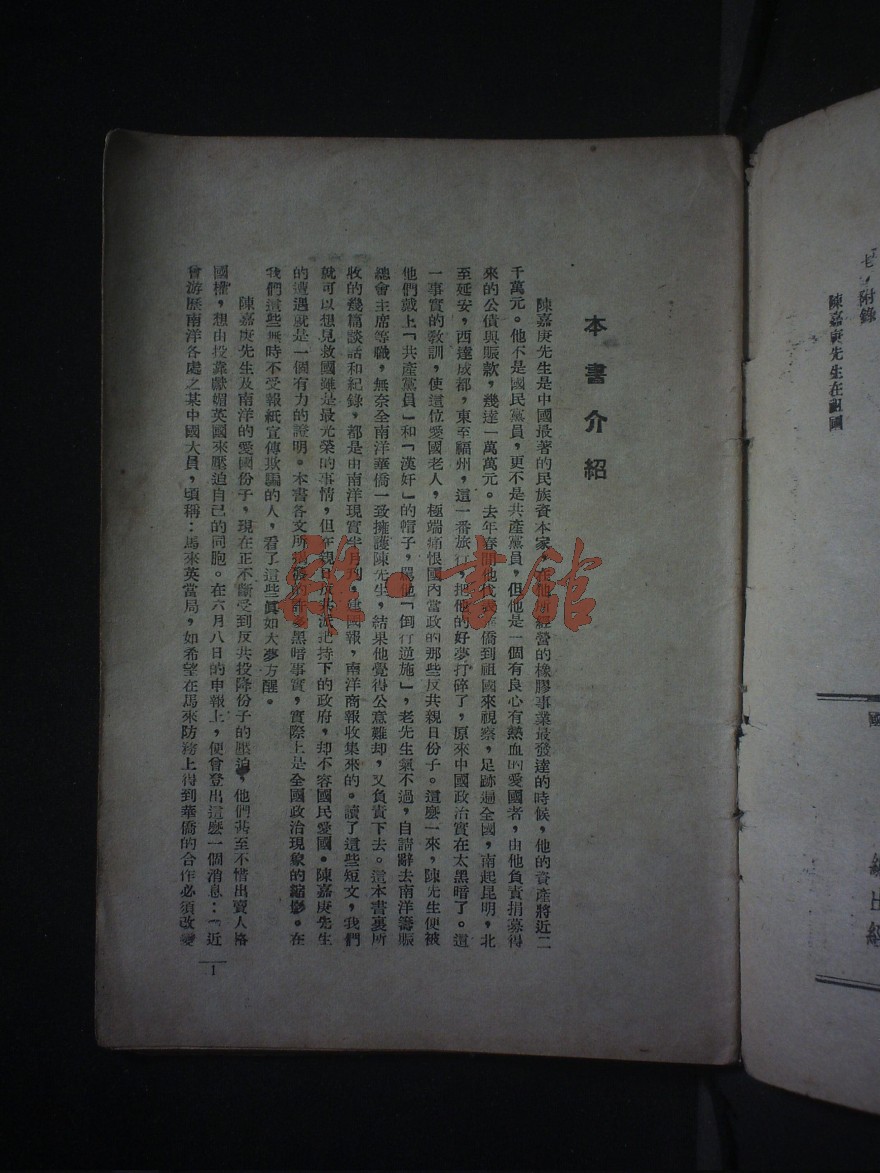 七，附錄
陳嘉庚先生在祖國
國
本書介紹
陳嘉庚先生是中國最著的民族資本家，在他經營的橡膠事業最發達的時候，他的資產將近二
千萬元。他不是國民黨員，更不是共產黨員，但他是一個有良心有熱血的愛國者，由他負責捐募得
來的公債與賬款，幾達一萬萬元。去年春間他代表華僑到祖國來視察，足跡遍全國，南起昆明，北
至延安，西達成都，東至福州，這一番旅行，把他的好夢打碎了，原來中國政治實在太黑暗了。這
一事實的教訓，使這位愛國老人，極端痛恨國內當政的那些反共親日份子。這麼一來，陳先生便被
他們戴上「共產黨員」和「漢奸」的帽子，罵他「倒行逆施」，老先生氣不過，自請辭去南洋籌賑
總會主席等職，無奈全南洋華僑一致擁護陳先生，結果他覺得公意難却，又負責下去。這本書裏所
收的幾篇談話和紀錄，都是由南洋現實半月刊，建國報，南洋商報收集來的。讀了這些短文，我們
就可以想見救國雖是最光榮的事情，但在親日反共派把持下的政府，却不容國民愛國。陳嘉庚先生
的遭遇就是一個有力的證明。本書各文所的許多黑暗事實，實際上是全國政治現象的縮影。在
我們這些無時不受報紙宣傳欺騙的人，看了這些真如大夢方醒。
陳嘉庚先生及南洋的愛國份子，現在正不斷受到反共投降份子的壓迫，他們甚至不惜出賣人格
國權，想由投靠獻媚英國來壓迫自己的同胞。在六月八日的申報上，便曾登出這麼一個消息：「近
曾游歷南洋各處之某中國大員，頃稱：馬來英當局，如希望在馬來防務上得到華僑的合作必須改變
1
雜·書館